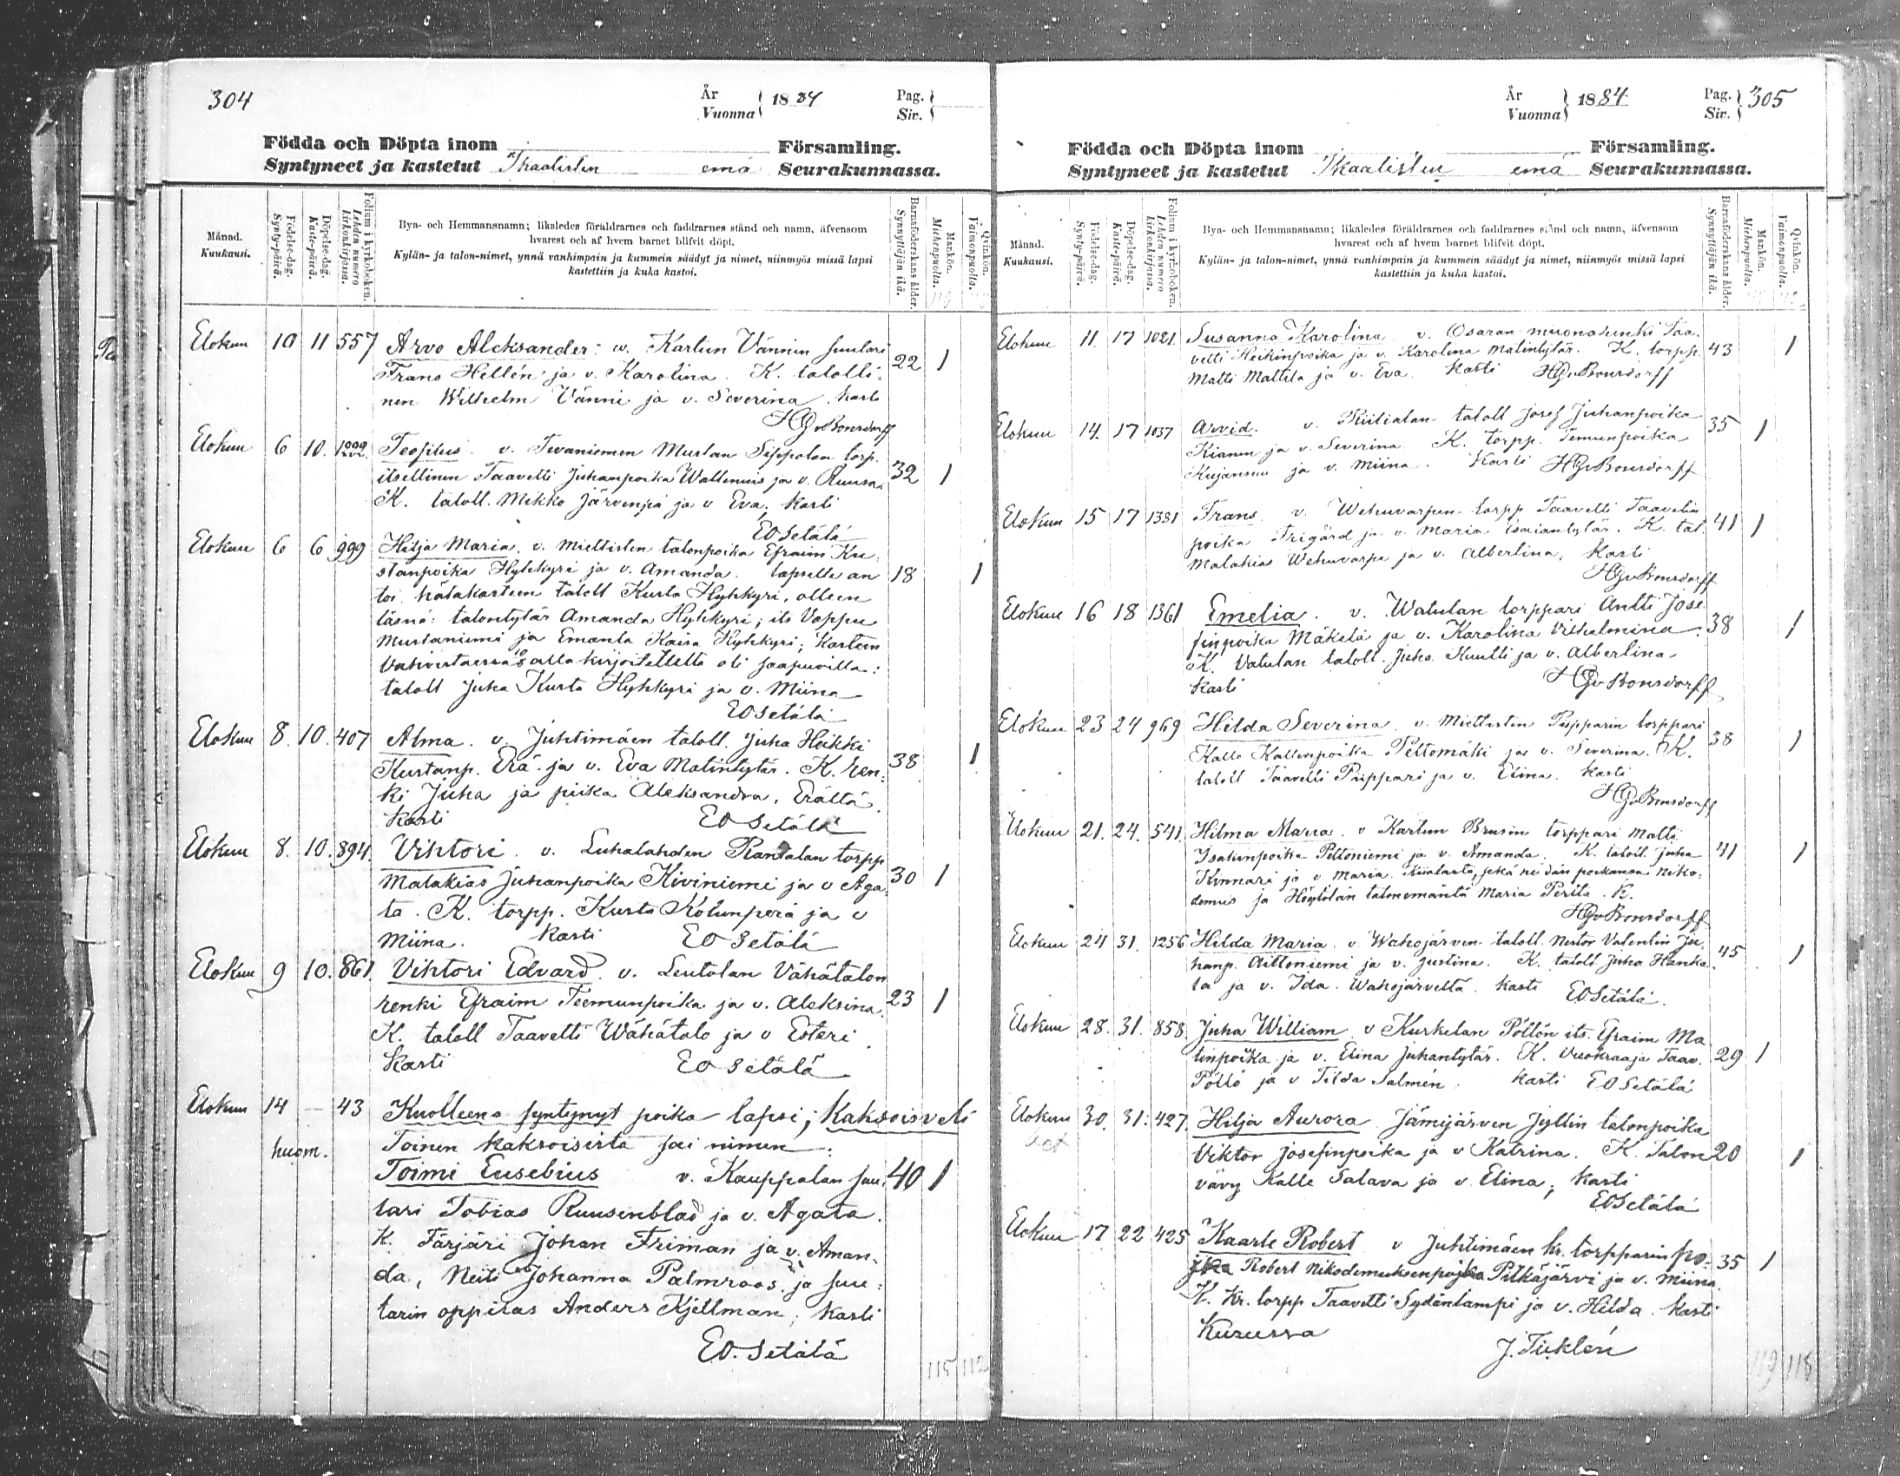 304
År
Vuonna
1884
Pag.
Siv.
Födda och Döpta inom Församling.
Syntyneet ja kastetut Ikaalisten emä Seurakunnassa.
Månad.
Kuukausi.
Födelse-dag.
Synty-päivä.
Döpelse-dag.
Kaste-päivä.
Folium i kyrkoboken.
Lehden numero kirkonkirjassa.
Bya- och Hemmansnamn; likaledes föräldrarnes och faddrarnes stånd och namn, äfvensom
hvarest och af hvem barnet blifvit döpt.
Kylän- ja talon-nimet, ynnä vanhimpain ja kummein säädyt ja nimet, niinmyös missä lapsi
kastettiin ja kuka kastoi.
Barnaföderskans ålder.
Synnyttäjän ikä.
Mankön.
Miehenpuolta.
Qvinkön.
Vaimonpuolta.
Elokuu 10 11 557 Arvo Aleksander v. Kartun Vännin suutari 22 1
Frans Hellén ja v. Karolina. K. talolli-
nen Wilhelm Vänni ja v. Severina. kasti
HGvBonsdorff
Elokuu 6 10. 1222. Teofilus. v. Sippolan torp. 32 1
itsellinen Taavetti Juhanpoika Wallenius ja v. Ruusa
K. taloll. Mikko Järvenpä ja v Eva, kasti
EO Setälä
Elokuu 6 6 999 Hilja Maria. v. Miettisten talonpoika Efraim Ku- 18 1
stanpoika Hyhkyri ja v. Amanda. lapselle an
toi hätäkasteen taloll Kusta Hyhkyri, ollen
läsnä: talontytär Amanda Hyhkyri; its Vappu
Mustaniemi ja Emanta Kaisa Hyhkyri; Kasteen
vahvistaessa 10/8 allekirjoitetulta oli saapuvilla:
taloll Juha Kusta Hyhkyri ja v. Miina
EO Setälä
Elokuu 8. 10. 407 Alma. v. Juhtimäen taloll. Juha Heikki 38 1
Kustanp. Erä ja v. Eva Matintytär. K. ren-
ki Juha ja piika Aleksandra, Erältä.
Kasti EO Setälä
Elokuu 8. 10. 894. Vihtori. v. Luhalahden Rantalan torpp 30 1
Malakias Juhanpoika Kiviniemi ja v Aga
ta. K. torpp. Kusta Kolunperä ja v
Miina. Kasti EO Setälä
Elokuu 9 10. 861. Vihtori Edvard. v. Leutolan Vähätalon 23 1
renki Efraim Teemunpoika ja v. Aleksina.
K. taloll Taavetti Wähätalo ja v Esteri.
Kasti EO Setälä
Elokuu 14 — 43 Kuolleena syntynyt poika lapsi; Kaksoisveli
huom. Toinen kaksoisista sai nimen:
Toimi Eusebius v. Kauppalan suu- 40 1
tari Tobias Ruusinblad ja v. Agata.
K. Färjäri Johan Friman ja v. Aman-
da, Neiti Johanna Palmroos ja suu-
tarin oppilas Anders Kjellman; kasti
EO. Setälä
115 112
År
Vuonna
1884
Pag.
Siv.
305
Födda och Döpta inom Församling.
Syntyneet ja kastetut Ikaalisten emä Seurakunnassa.
Månad.
Kuukausi.
Födelse-dag.
Synty-päivä.
Döpelse-dag.
Kaste-päivä.
Folium i kyrkoboken.
Lehden numero kirkonkirjassa.
Bya- och Hemmansnamn; likaledes föräldrarnes och faddrarnes stånd och namn, äfvensom
hvarest och af hvem barnet blifvit döpt.
Kylän- ja talon-nimet, ynnä vanhimpain ja kummein säädyt ja nimet, niinmyös missä lapsi
kastettiin ja kuka kastoi.
Barnaföderskans ålder.
Synnyttäjän ikä.
Mankön.
Miehenpuolta.
Qvinkön.
Vaimonpuolta.
Elokuu 11. 17 1021. Susanna Karolina v. Osaran muonarenki Taa- 43 1
vetti Heikinpoika ja v. Karolina Matintytär. K. torpp.
Matti Mattila ja v. Eva. kasti HGvBonsdorff
Elokuu 14. 17 1037 Arvid. v. taloll Josef Juhanpoika 35 1
Kianen ja v. Severina K. torpp.
Kujansuu ja v. Miina. Kasti HGvBonsdorff
Elokuu 15 17 1381 Frans v. Wehuvarpen torpp Taavetti Taavetin 41 1
poika Frigård ja v. Maria Esaiantytär. K. tal.
Malakias Wehuvarpe ja v. Albertina. Kasti
HGvBonsdorff
Elokuu 16 18 1361 Emelia. v. Watulan torppari Antti Jose- 38 1
finpoika Mäkelä ja v. Karolina Vilhelmina.
K. Vatulan taloll. Juho Kuutti ja v. Albertina.
Kasti HGvBonsdorff
Elokuu 23 24 969 Hilda Severina v. Miettisten Pupparin torppari 38 1
Kalle Kallenpoika Peltomäki ja v. Severina. K.
taloll Taavetti Puppari ja v. Elina. kasti
HGvBonsdorff
Elokuu 21. 24. 541. Hilma Maria. v Kartun Brusin torppari Matti 41 1
Isakinpoika Peltoniemi ja v. Amanda. K. taloll. Juha
Kinnari ja v Maria poikansa Niko-
demus ja talonemäntä Maria
HGvBonsdorff
Elokuu 24 31. 1256 Hilda Maria. v Wahojärven taloll. Nestor Valentin Ju- 45 1
hanp. Aittoniemi ja v. Justina. K. taloll Juha Hanka-
la ja v. Ida. Wahojärveltä. kasti EO Setälä.
Elokuu 28. 31. 858. Juha William v Kurkelan Pöllön its. Efraim Ma- 29 1
tinpoika ja v. Elina Juhantytär. K. Vuokraaja Taav.
Pöllö ja v Tilda Salmén. kasti EO Setälä
Elokuu 30. 31. 427. Hilja Aurora Jämijärven Jyllin talonpoika 20 1
Viktor Josefinpoika ja v Katrina. K. Talon
vävy Kalle Salava ja v. Elina; Kasti
EO Setälä
Elokuu 17 22 425 Kaarle Robert v Juhtimäen kr. torpparin po- 35 1
ika Robert Nikodemuksenpoika Pitkäjärvi ja v. Miina.
K. Kr. torpp Taavetti Sydänlampi ja v. Hilda kasti
Kurussa J. Ticklén
119 118